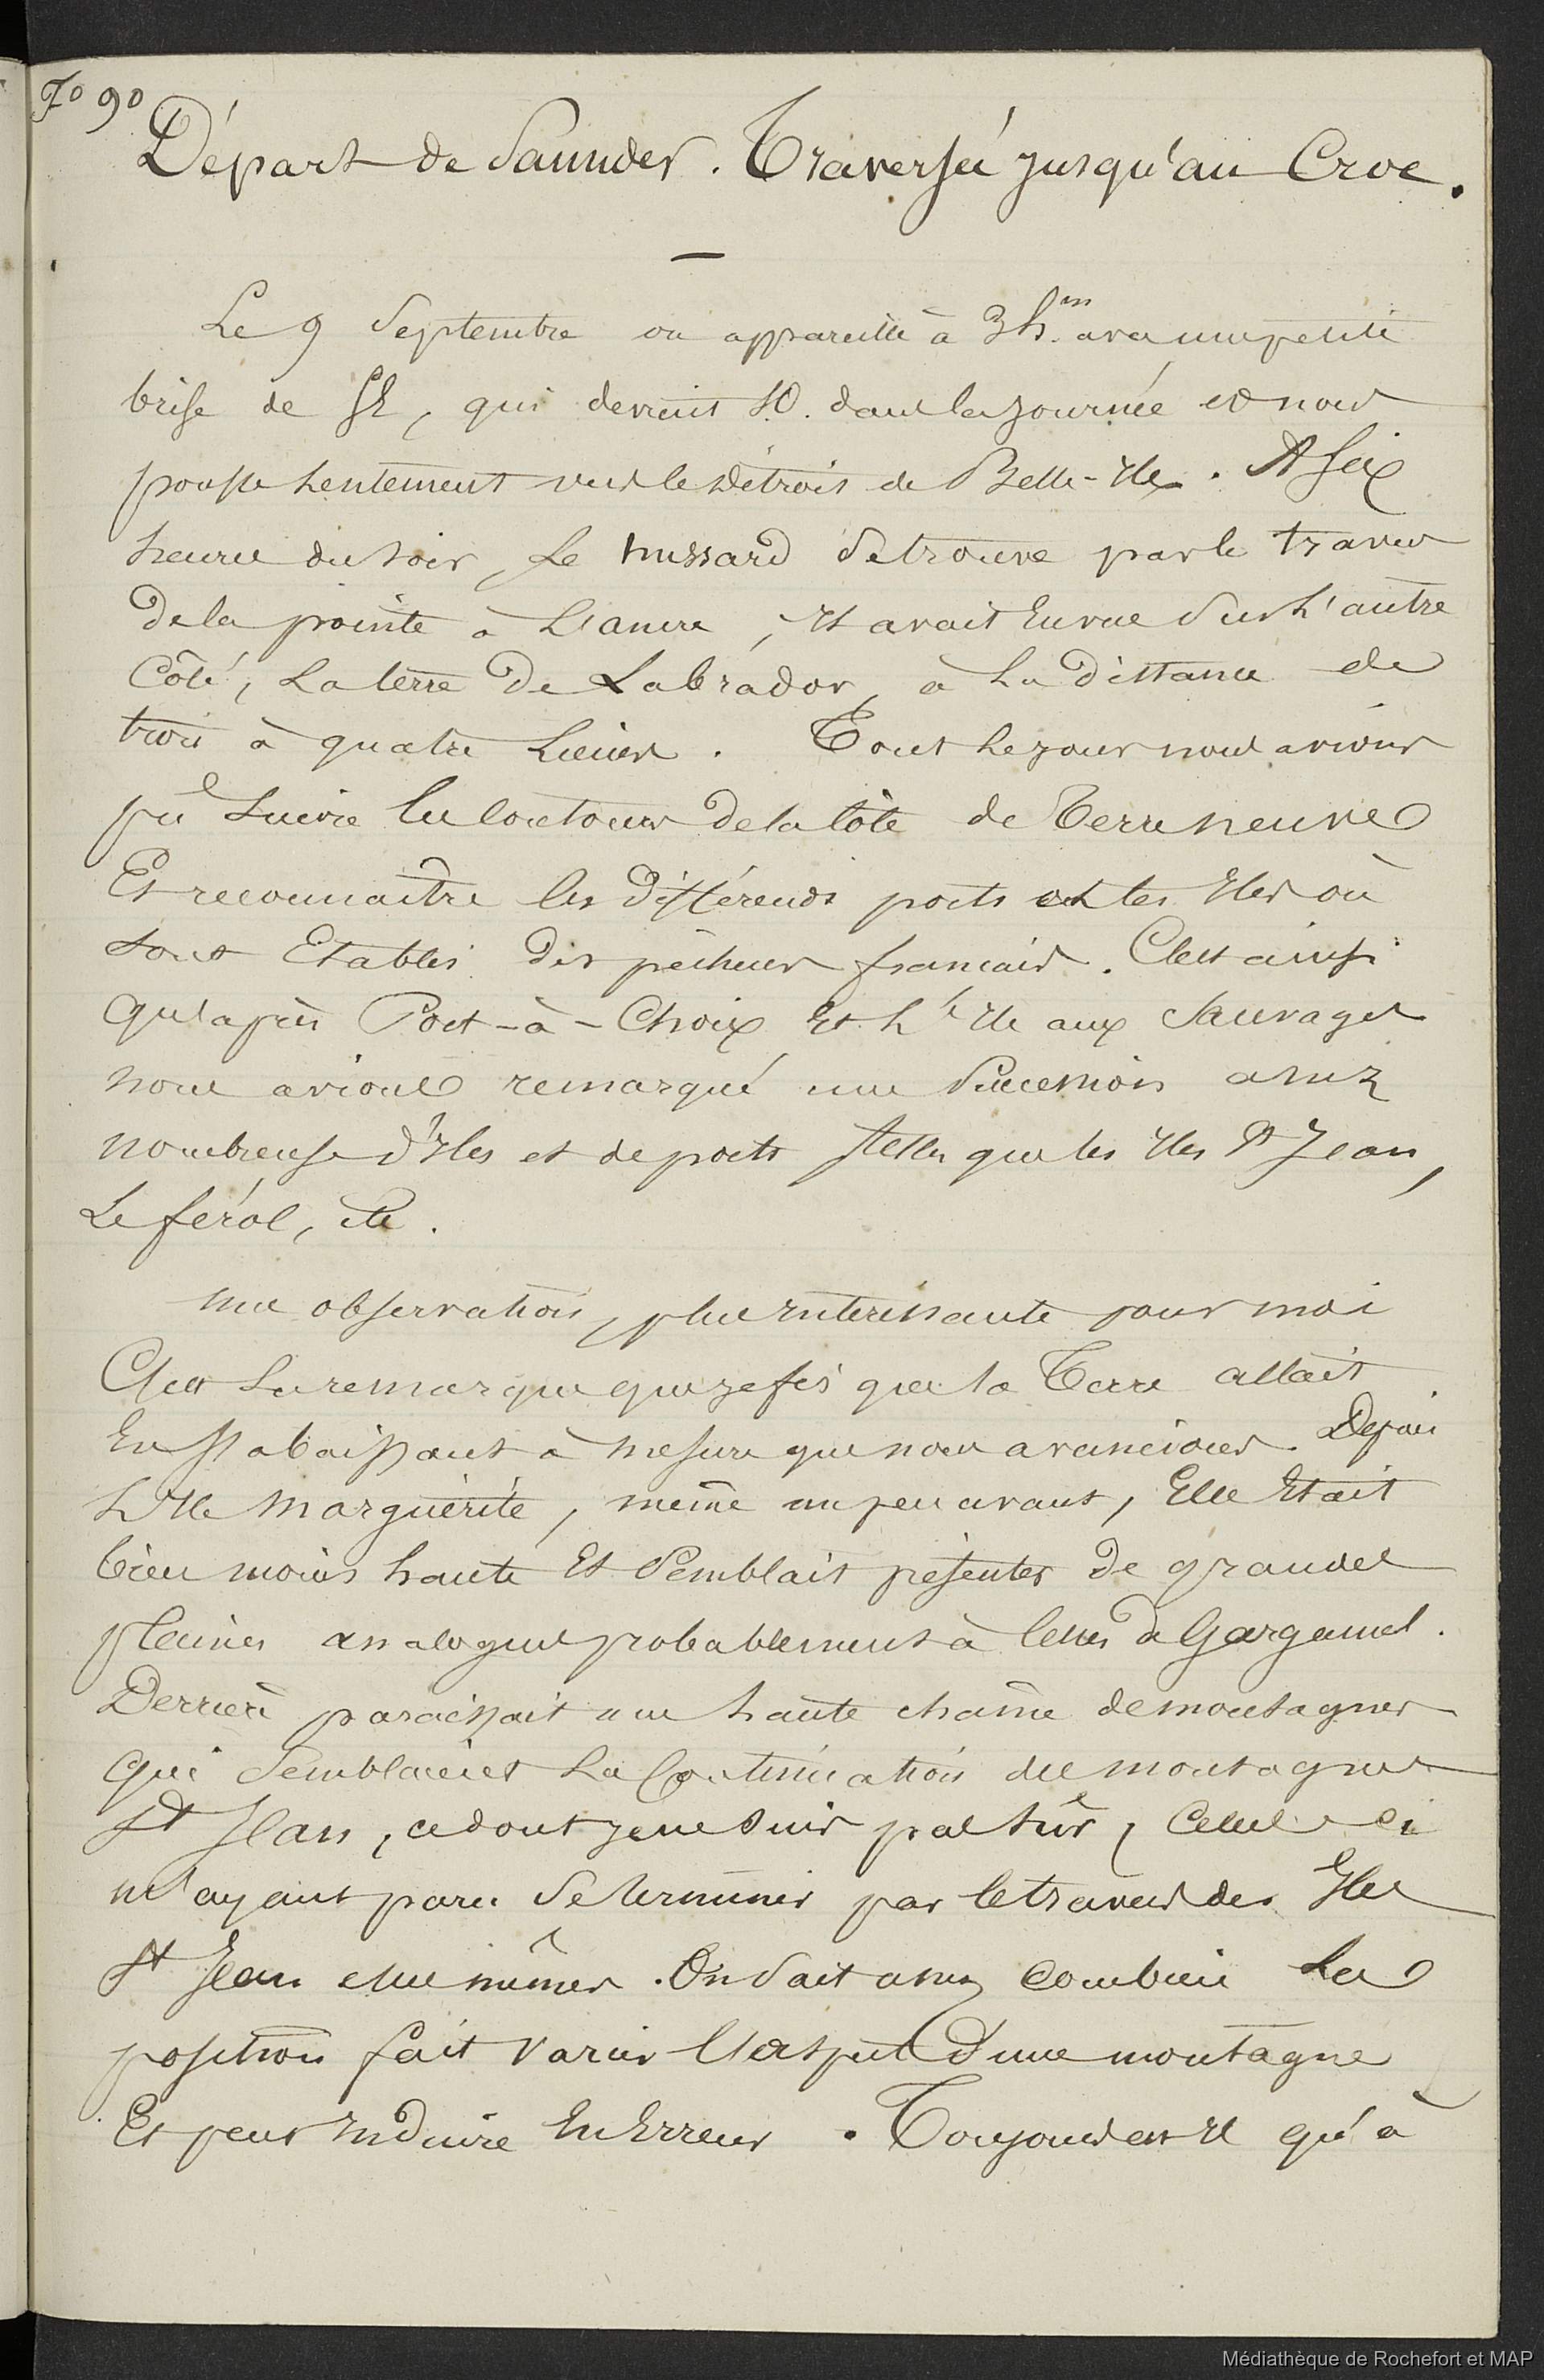 Fo 90
Départ de Saunder. Traversée jusqu'au Croc.
Le 9 Septembre on appareille à 3h.m avec une petite
brise de SE, qui devient SO. dans la journée et nous
pousse lentement vers le détroit de Belle-Ile. A six
heures du soir, le hussard se trouve par le travers
de la pointe à L'ancre, et avait en vue sur L'autre
Côté, La terre de Labrador, à La distance de
trois à quatre Lieues. Tout le jour nous avions
pu Suivre les contours de la Côte de Terre neuve
Et reconnaître les différends ports et les Iles où
sont Etablis des pêcheurs francais. C'est ainsi
qu'après Port-à-Choix Et L'Ile aux Sauvages
nous avions remarqué une Succession assez
nombreuse d'Iles et de ports telles que les Iles St Jean,
Le férol, etc.
une observation, plus interessante pour moi
C'est La remarque que je fis que la Terre allait
En s'abaissant à mesure que nous avancions. Depuis
L'Ile Marguérite, même un peu avant, Elle Etait
bien moins haute Et Semblait présenter de grandes
plaines analogues probablement à celles de Gargamel.
Derrière paraissait une haute chaîne de montagnes
qui Semblaient La Continuation des montagnes
St Jean, ce dont je ne suis pas sûr, Celles ci
m'ayant paru Se terminer par le travers des Iles
St Jean elles mêmes. On sait assez combien La
position fait varier l'aspect d'une montagne
Et peut Induire En Erreur. Toujours est il qu'à
Médiathèque de Rochefort et MAP